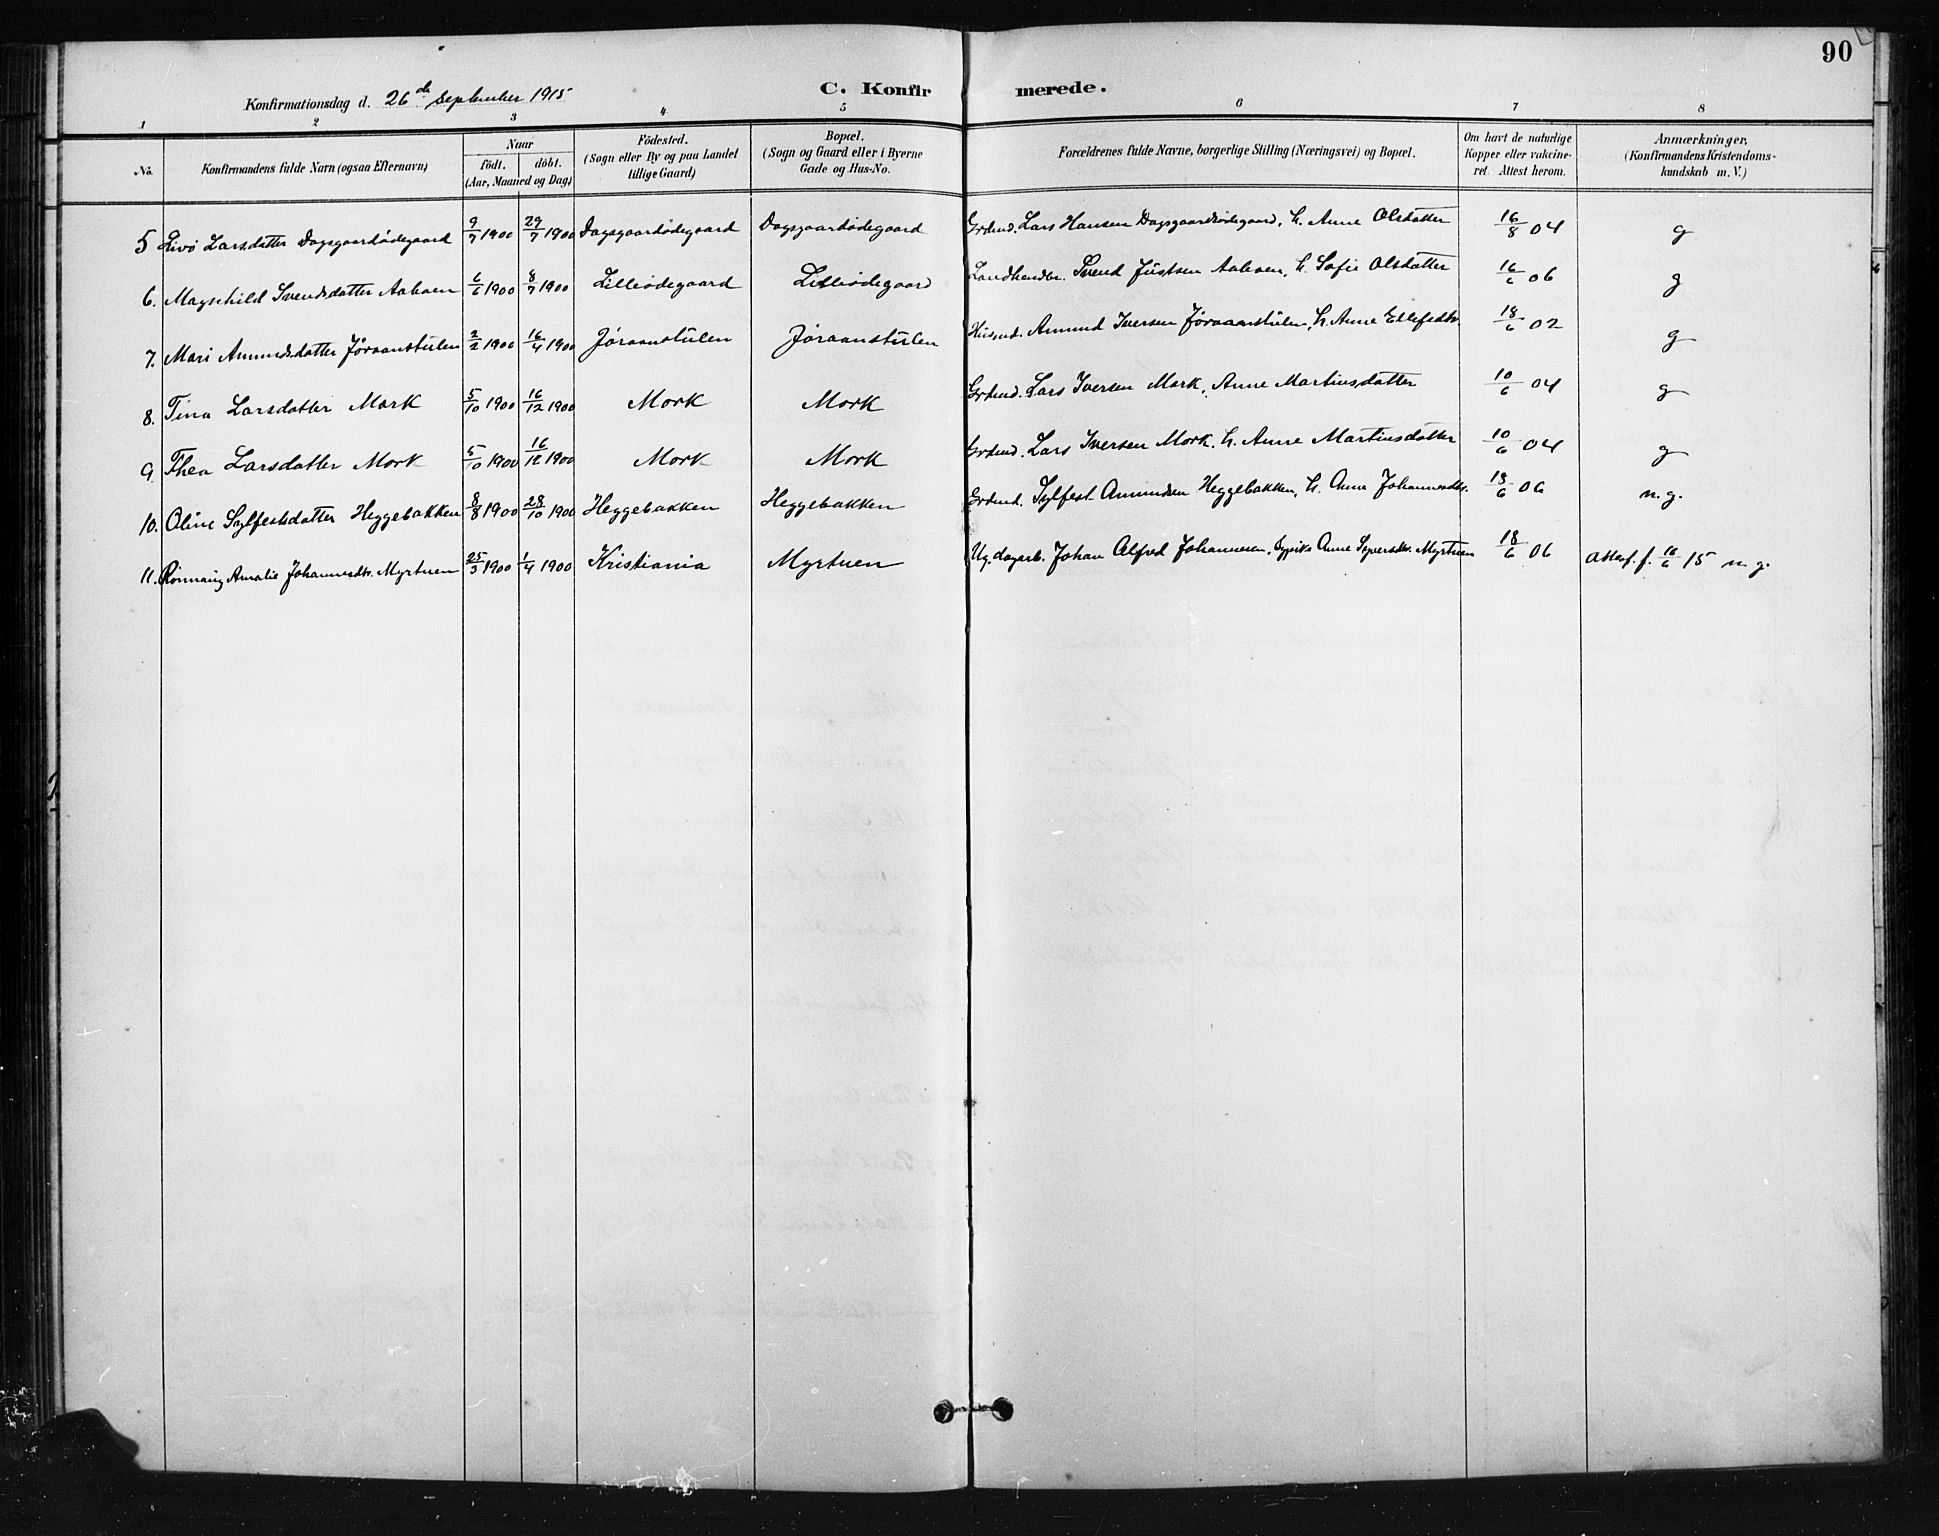 90
Konfirmationsdag d. 26de September 1915
C. Konfirmerede.
1 2 3 4 5 6 7 8
No.
Konfirmandens fulde Navn (ogsaa Efternavn)
Naar
født. døbt.
(Aar, Maaned og Dag)
Fødested.
(Sogn eller By og paa Landet
tillige Gaard)
Bopæl.
(Sogn og Gaard eller i Byerne
Gade og Hus-No.
Forældrenes fulde Navne, borgerlige Stilling (Næringsvei) og Bopæl.
Om havt de naturlige
Kopper eller vakcine-
ret. Attest herom.
Anmærkninger.
(Konfirmandens Kristendoms-
kundskab m. V.)
5 Livø Larsdatter Dagsgaardødegaard 9/7 1900 29/7 1900 Dagsgaardødegaard Dagsgaardødegaard Grdmd. Lars Hansen Dagsgaardødegaard, h. Anne Olsdatter 16/8 04 g
6. Magnhild Svendsdatter Aabøen 6/6 1900 8/7 1900 Lilleødegaard Lilleødegaard Landhandler. Svend Justsen Aabøen, h. Sofie Olsdatter 16/6 06 g
7. Mari Amundsdatter Jøraanstulen 2/2 1900 16/4 1900 Jøraanstulen Jøraanstulen Husmd. Amund Iversen Jøraanstulen, h. Anne Ellefsdtr. 18/6 02 g
8. Tina Larsdatter Mork 5/10 1900 16/12 1900 Mork Mork Grdmd. Lars Iversen Mork, Anne Martinsdatter 10/6 04 g
9 Thea Larsdatter Mork 5/10 1900 16/12 1900 Mork Mork Grdmd. Lars Iversen Mork. h. Anne Martinsdatter 10/6 04 g
10. Oline Sylfestsdatter Heggebakken 8/8 1900 28/10 1900 Heggebakken Heggebakken Grdmd. Sylfest Amundsen Heggebakken, h. Anne Johannesdtr. 18/6 06 m. g.
11. Rønnaug Amalie Johannesdtr. Myrtuen 25/3 1900 1/4 1900 Kristiania Myrtuen Ug. dagarb. Johan Alfred Johannesen, Anne Syversdtr. Myrtuen 18/6 06 Attest. f. 16/6 15 m. g.